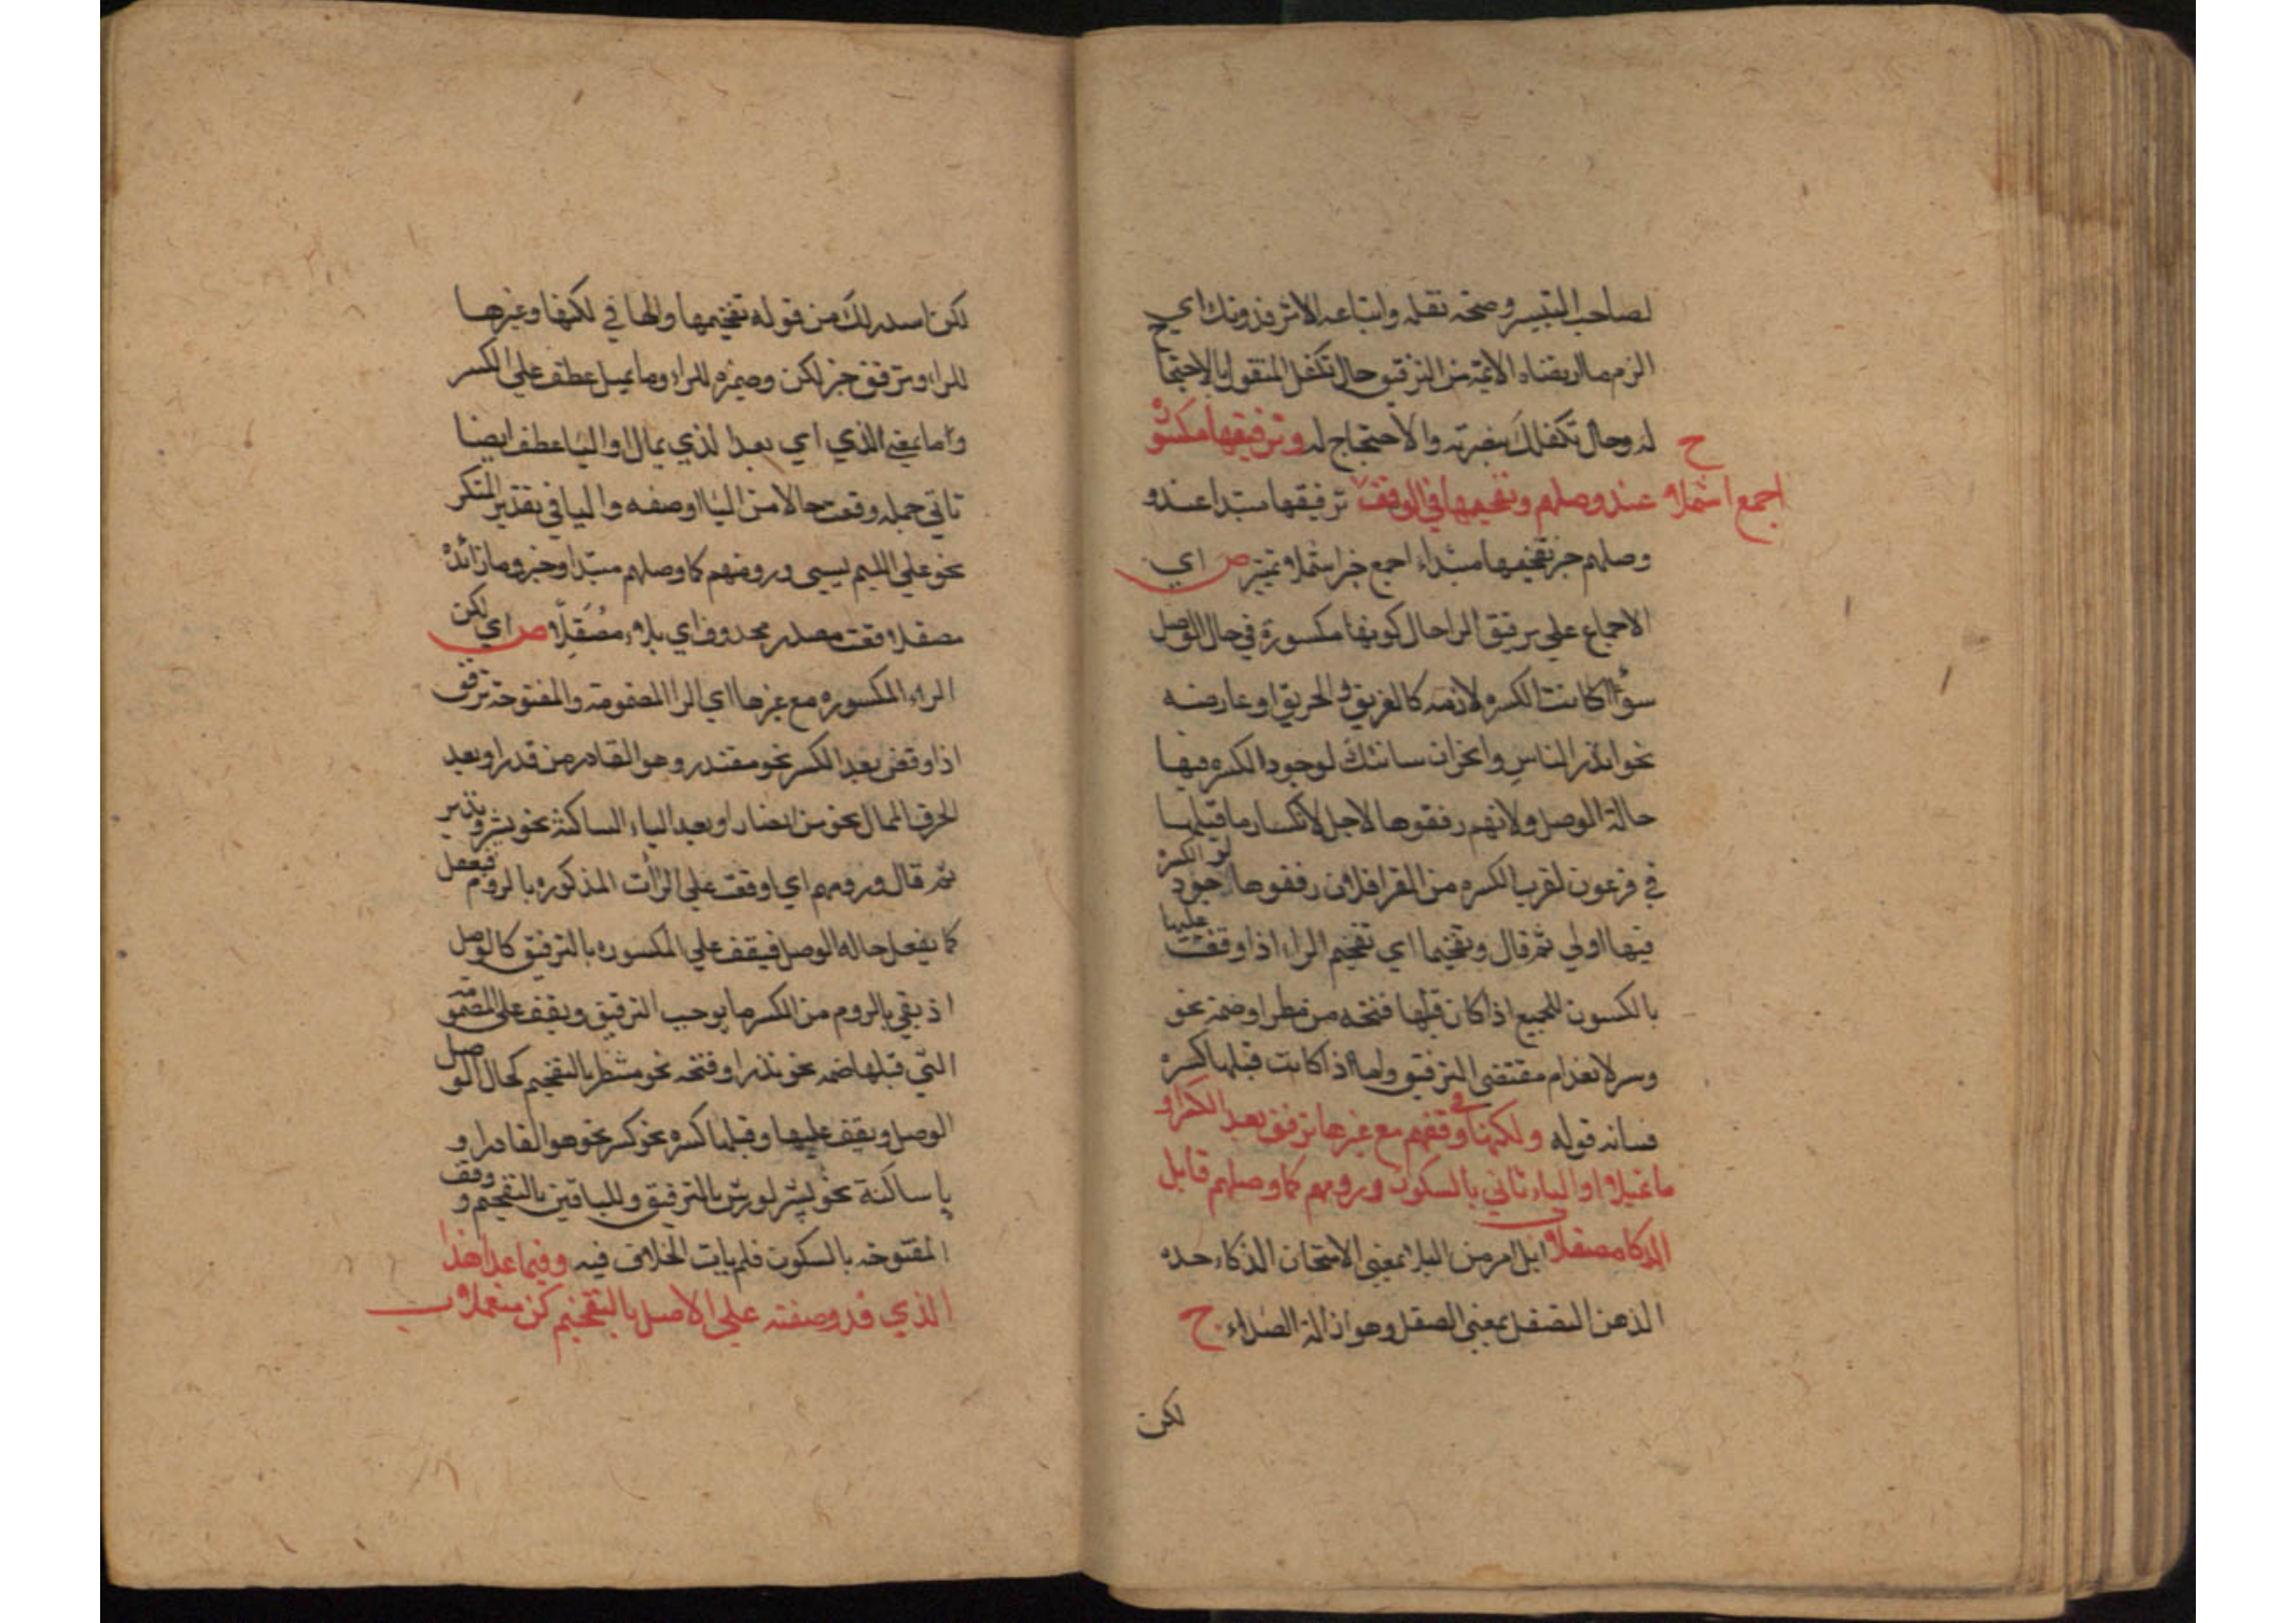 لصاحب التيسير وصحة نقله واتباعه الاثر فدونك اي
الزم ما ارتضاه الائمة من الترقيق حال تكفل المنقول بالاحتجا
له وحال تكفلك بنصرته والاحتجاج له وترقيقها مكسو
ح
اجمع اشملا عند وصلهم وتفخيمها في الوقف ترقيقها مبتدا عند و
وصلهم خبر تفخيمها مبتداء اجمع خبر اشملا تميز ص اي
الاجماع على ترقيق الراحال كونها مكسورة في حال الوصل
سواء كانت الكسره لازمه كالغريق والحريق او عارضه
نحو انذر الناس وانحران سانئك لوجود الكسره فيها
حالة الوصل ولانهم رققوها لاجل لانكسار ما قبلها
في فرعون لقرب الكسره من القرافلان رققوها لوجود الكسرة
فيها اولي ثم قال وتفخيما اي تفخيم الراء اذا وقفت عليها
بالكسون للجميع اذا كان قبلها فتحه من مطر او ضمة نحو
وسر لانعدام مقتضى الترقيق واما اذا كانت قبلها كسرة
فسانه قوله ولكنها في وقفهم مع غيرها ترقق بعد الكسر او
ما تميلا او الياء تاتي بالسكون ورومهم كما وصلهم فابل
الذكا مصقلا ابل امر من البلا بمعنى الامتحان الذكاء حده
الذهن التصقل بمعنى الصقل وهو ازالة الصداء ح
لكن
لكن اسدرلك من قوله تفخيمها والها في لكنها وغيرها
للراء وترقق خبر لكن وضميره للراء وما تميل عطف على الكسر
وما بمعنى الذي اي بعد الذي يمال او اليا عطف ايضا
تاتي جمله وقعت حالا من اليا او صفه واليا في تقدير المتكر
نحو على الليم يسبى ورومهم كما وصلهم مبتدا وخبر وما زائده
مصقلا نعت مصدر محذوف اي بلاء مُصَقِلًا ص اي لكن
الراء المكسوره مع غيرها اي الرا المضمومة والمفتوحة ترقق
اذا وقفن بعد الكسر نحو مقتدر وهو القادر من قدر او بعد
الحرف الممال نحو من انصار او بعد الياء الساكنة نحو بشير ونذير
ثم قال ورومهم اي اوقفت على الرأت المذكوره بالروم فيفعل
كما يفعل حاله الوصل فيقف على المكسوره بالترقيق كالوصل
اذ بقي بالروم من الكسر ما يوجب الترقيق ويقف على المضمومة
التي قبلها ضمه نحو نذر او فتحه نحو مشطر بالتفخيم كحال الوصل
الوصل ويقف عليها وقبلها كسره نحو كسر نحو هو القادر او
ياساكنة نحو بشير لورش بالترقيق وللباقين بالتفخيم و وقف
المفتوحه بالسكون فلم يات الخلاف فيه وفيما عدا هذا
الذي قد وصفته على الاصل بالتفخيم كن متعملا ب